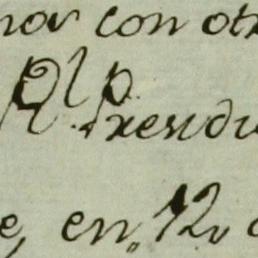 nor con otr
Rl Presidi
e, en 12 d